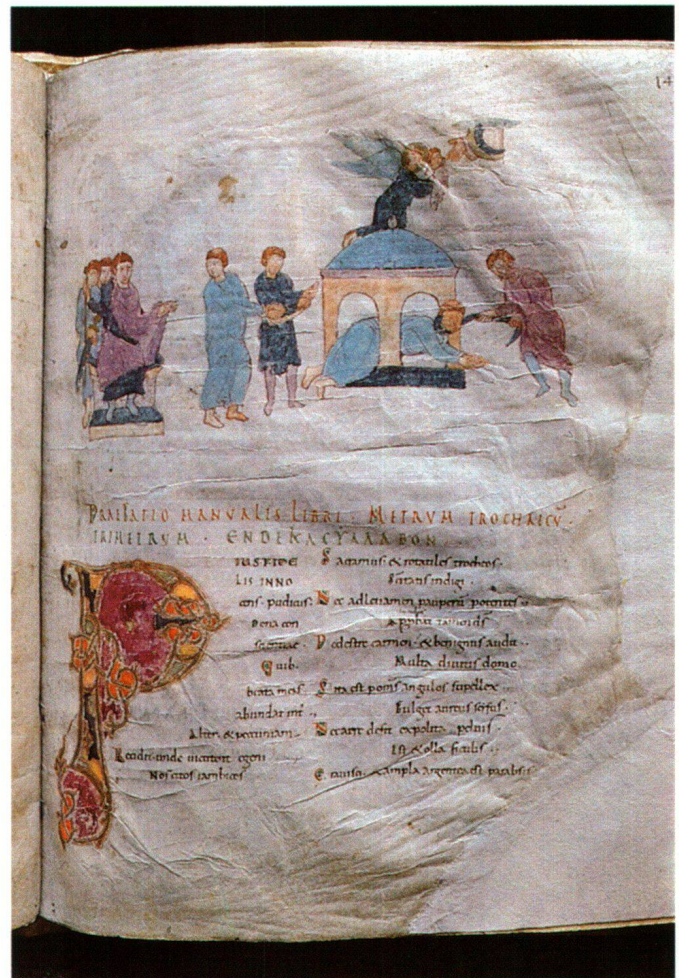 14
PRAEFATIO MANVALIS LIBRI : METRVM TROCHAICŪ ·
TRIMETRVM · ENDEKACYΛΛABON
PIUS FIDE
LIS INNO
cens · pudicus :
Dona con
scientiae ·
Quib ·
beata mens
abundat int ·,
Alter & pecuniam ·
Recidit unde victitent egeni
Nos citos iambicos
Sacramus · & rotatiles trocheos ·
Scitatis indigi ·
Nec ad levamen pauperū potentes ··
Approbat tam ds
Pedestre carmen · & benignus audit ··
Multa divitis domo
Sita est poms angulos supellex ··
Fulget aureus scifus ·
Nec aere defit expolita pelvis ·
Est & olla fictilis ··
Gravisq · & ampla argentea est parabsis ·